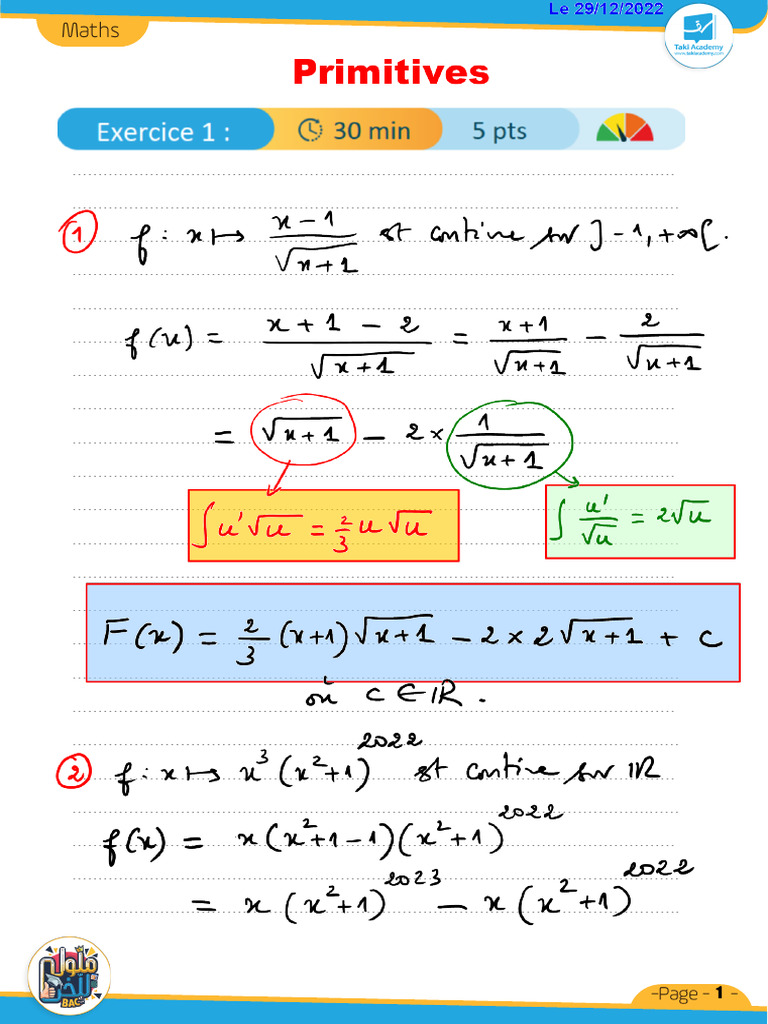 Le 29/12/2022
Maths
Taki Academy
www.takiacademy.com
Primitives
Exercice 1 : 30 min 5 pts
① f : x ↦ (x-1)/√(x+1) est continue sur ]-1, +∞[.
f(x) = (x+1-2)/√(x+1) = (x+1)/√(x+1) - 2/√(x+1)
= √(x+1) - 2 × 1/√(x+1)
∫u'√u = 2/3 u√u
∫ u'/√u = 2√u
F(x) = 2/3 (x+1)√(x+1) - 2×2√(x+1) + c
où c ∈ IR.
② f : x ↦ x³(x²+1)^2022 est continue sur IR
f(x) = x(x²+1-1)(x²+1)^2022
= x(x²+1)^2023 - x(x²+1)^2022
BAC
-Page - 1 -